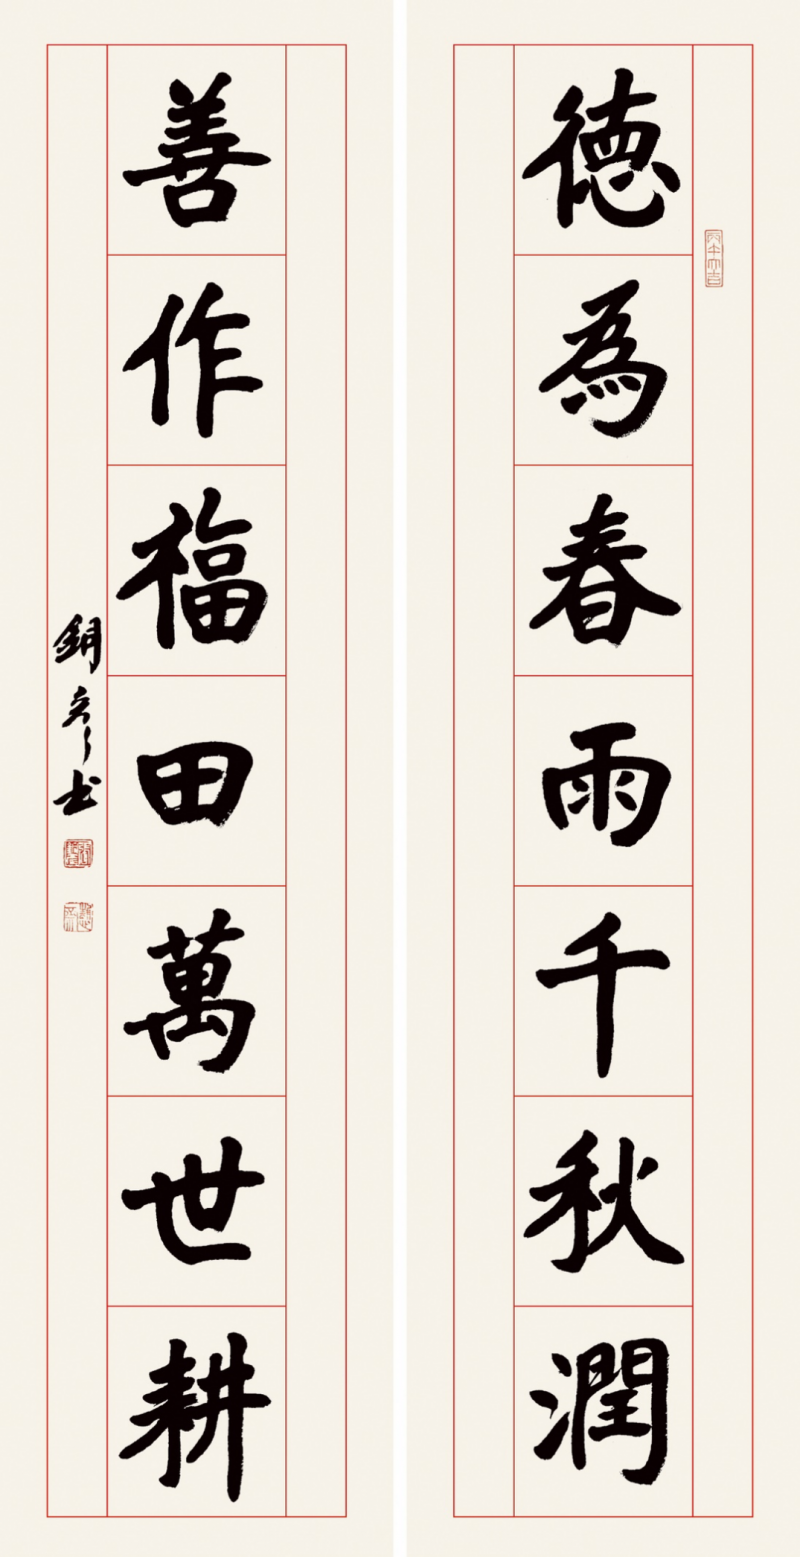 德為春雨千秋潤
善作福田萬世耕
銅彥书